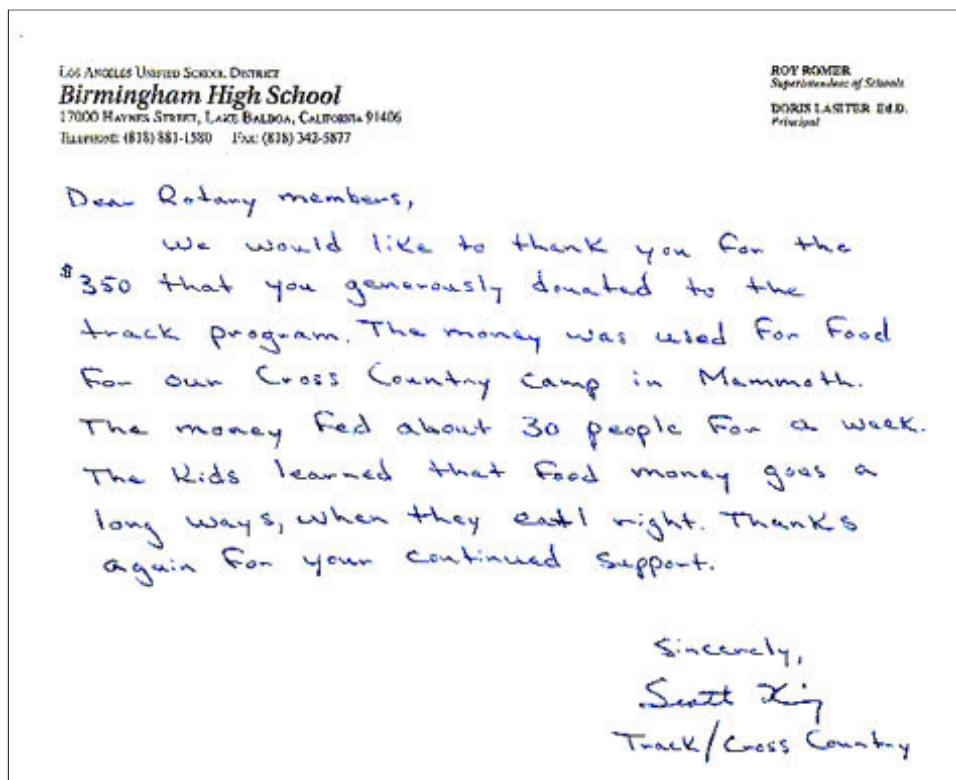 LOS ANGELES UNIFIED SCHOOL DISTRICT
Birmingham High School
17000 HAYNES STREET, LAKE BALBOA, CALIFORNIA 91406
TELEPHONE: (818) 881-1580 FAX: (818) 342-5877
ROY ROMER
Superintendent of Schools
DORIS LASITER Ed.D.
Principal
Dear Rotary members,
We would like to thank you for the
$350 that you generously donated to the
track program. The money was used for food
for our Cross Country camp in Mammoth.
The money fed about 30 people for a week.
The kids learned that food money goes a
long ways, when they eat right. Thanks
again for your continued support.
Sincerely,
Scott King
Track/Cross Country